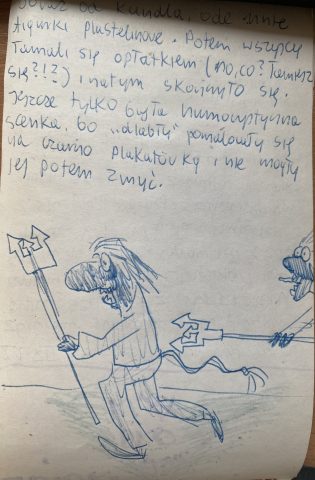 od kundla, ode mnie
figurki plastelinowe. Potem wszyscy
łamali się opłatkiem (no, co? Łamiesz
się?!?) i na tym skończyło się.
Jeszcze tylko była humorystyczna
scenka, bo "diabły" pomalowały się
na czarno plakatówką i nie mogły
jej potem zmyć.